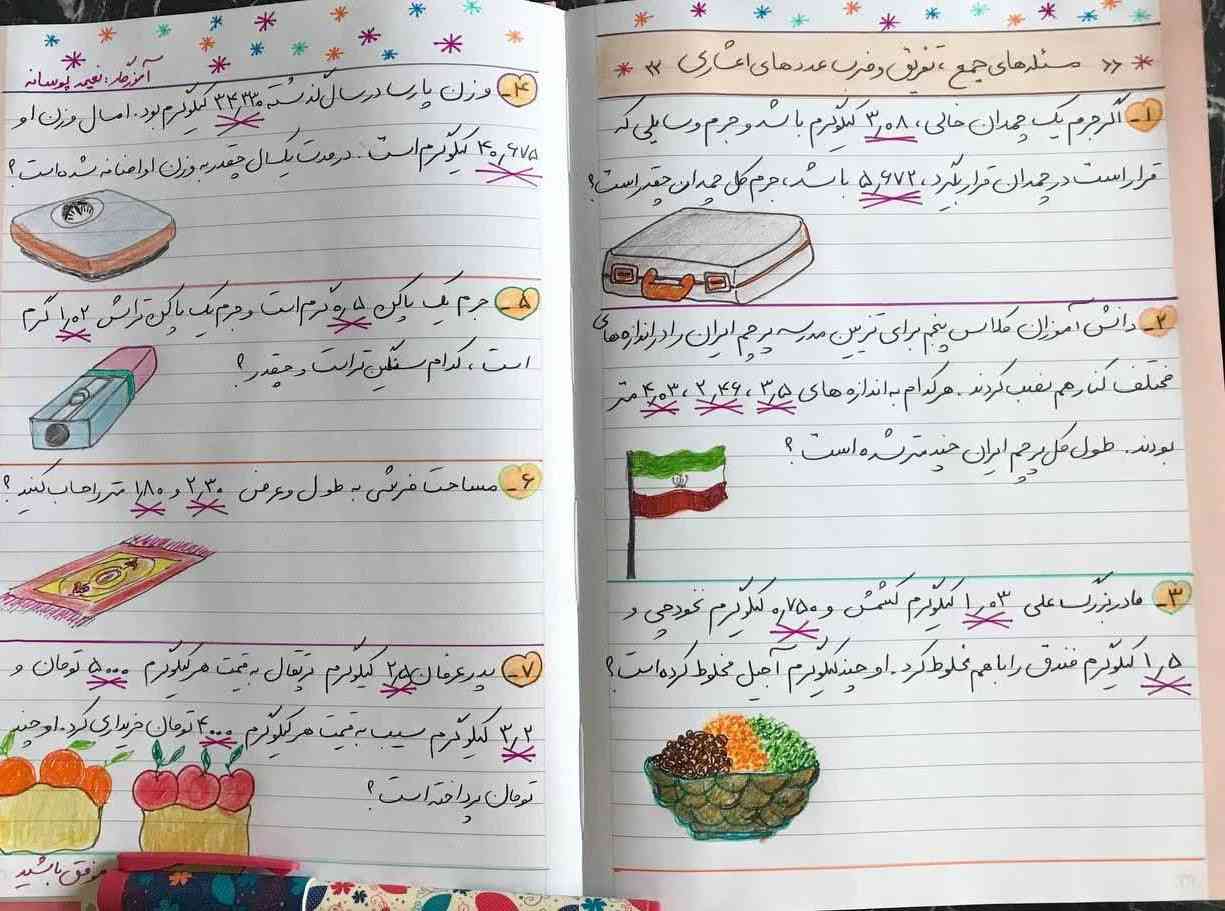 « مسئله‌های جمع، تفریق و ضرب عددهای اعشاری »
۱- اگر جرم یک چمدان خالی، ۳٫۰۸ کیلوگرم باشد و جرم وسایلی که
قرار است در چمدان قرار بگیرد، ۵٫۶۷۲ باشد، جرم کل چمدان چقدر است؟
۲- دانش آموزان کلاس پنجم برای تزیین مدرسه پرچم ایران را در اندازه‌های
مختلف کنار هم نصب کردند. هر کدام به اندازه های ۳٫۵، ۲٫۴۶، ۴٫۰۳ متر
بودند. طول کل پرچم ایران چند متر شده است؟
۳- مادربزرگ علی ۱٫۰۳ کیلوگرم کشمش و ۰٫۷۵۰ کیلوگرم نخودچی و
۱٫۵ کیلوگرم فندق را با هم مخلوط کرد. او چند کیلوگرم آجیل مخلوط کرده است؟
آموزگار: نعیمه پوستانه
۴- وزن پارسا در سال گذشته ۳۴٫۲۳۰ کیلوگرم بود. امسال وزن او
۴۰٫۶۷۵ کیلوگرم است. در مدت یکسال چقدر به وزن او اضافه شده است؟
۵- جرم یک پاکن ۰٫۵ گرم است و جرم یک پاکن تراش ۱٫۰۲ گرم
است، کدام سنگین تر است و چقدر؟
۶- مساحت فرشی به طول و عرض ۲٫۳۰ و ۱٫۸۰ متر را حساب کنید؟
۷- پدر عرفان ۲٫۵ کیلوگرم پرتقال به قیمت هر کیلوگرم ۵۰۰۰ تومان و
۳٫۲ کیلوگرم سیب به قیمت هر کیلوگرم ۴۰۰۰ تومان خریداری کرد. او چند
تومان پرداخته است؟
موفق باشید